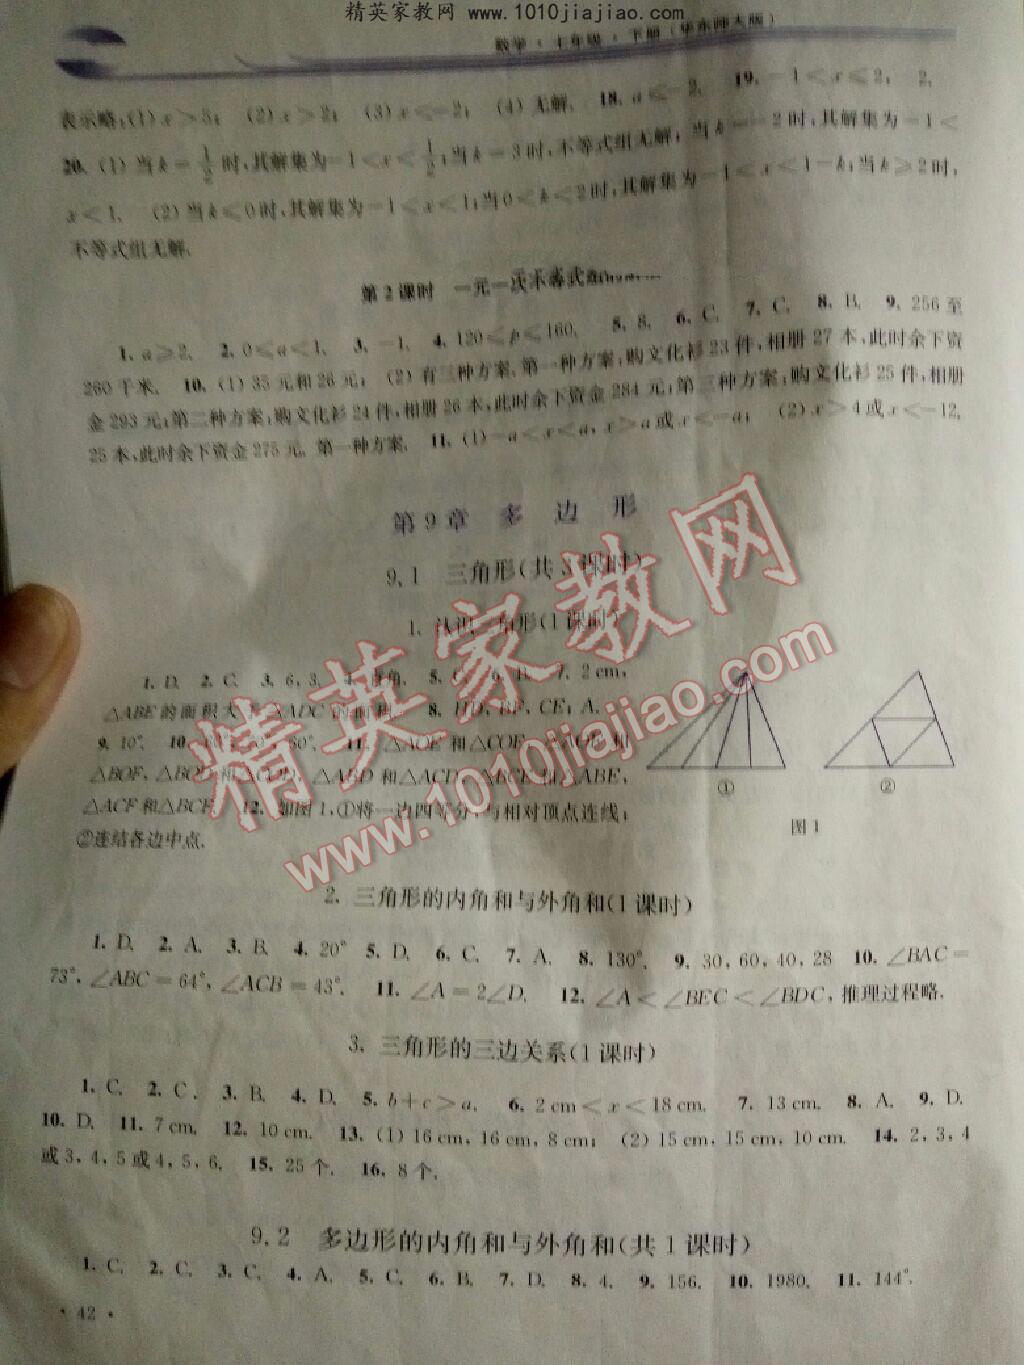 精英家教网 www.1010jiajiao.com
数学·七年级·下册（华东师大版）
表示略；(1) x＞5； (2) x＞2； (3) x＜－2； (4) 无解. 18. a≤－2. 19. －1＜x≤2， 2.
20. (1) 当k＝1/2时，其解集为－1＜x＜1/2；当k＝3时，不等式组无解；当k＝－2时，其解集为－1＜
x＜1. (2) 当k≤0时，其解集为－1＜x＜1；当0＜k＜2时，其解集为－1＜x＜1－k；当k≥2时，
不等式组无解.
第2课时 一元一次不等式
1. a≥2. 2. 0≤a＜1. 3. －1. 4. 120≤p≤160. 5. 8. 6. C. 7. C. 8. B. 9. 256至
260千米. 10. (1) 35元和26元； (2) 有三种方案. 第一种方案：购文化衫23件，相册27本，此时余下资
金293元；第二种方案：购文化衫24件，相册26本，此时余下资金284元；第三种方案：购文化衫25件，相册
25本，此时余下资金275元. 第一种方案. 11. (1) －a＜x＜a，x＞a或x＜－a； (2) x＞4或x＜－12.
第9章 多边形
9.1 三角形（共3课时）
1. 认识三角形（1课时）
1. D. 2. C. 3. 6，3. 4. 直角. 5. C. 6. 7. 2 cm，
△ABE的面积 △ADC的面积. 8. BF，CE；A.
9. 10°. 10. 60°. 11. △AOE和△COE，△AOB和
△BOF，△BOD和△COD，△ABD和△ACD，△BCE和△ABE，
△ACF和△BCF. 12. 如图1，①将一边四等分，与相对顶点连线；
②连结各边中点.
① ②
图1
2. 三角形的内角和与外角和（1课时）
1. D. 2. A. 3. B. 4. 20° 5. D. 6. C. 7. A. 8. 130°. 9. 30，60，40，28 10. ∠BAC＝
73°，∠ABC＝64°，∠ACB＝43°. 11. ∠A＝2∠D. 12. ∠A＜∠BEC＜∠BDC，推理过程略.
3. 三角形的三边关系（1课时）
1. C. 2. C. 3. B. 4. D. 5. b＋c＞a. 6. 2 cm＜x＜18 cm. 7. 13 cm. 8. A. 9. D.
10. D. 11. 7 cm. 12. 10 cm. 13. (1) 16 cm，16 cm，8 cm； (2) 15 cm，15 cm，10 cm. 14. 2，3，4
或3，4，5或4，5，6. 15. 25个. 16. 8个.
9.2 多边形的内角和与外角和（共1课时）
1. C. 2. C. 3. C. 4. A. 5. C. 6. B. 7. D. 8. 4. 9. 156. 10. 1980. 11. 144°.
·42·
精英家教网
www.1010jiajiao.com